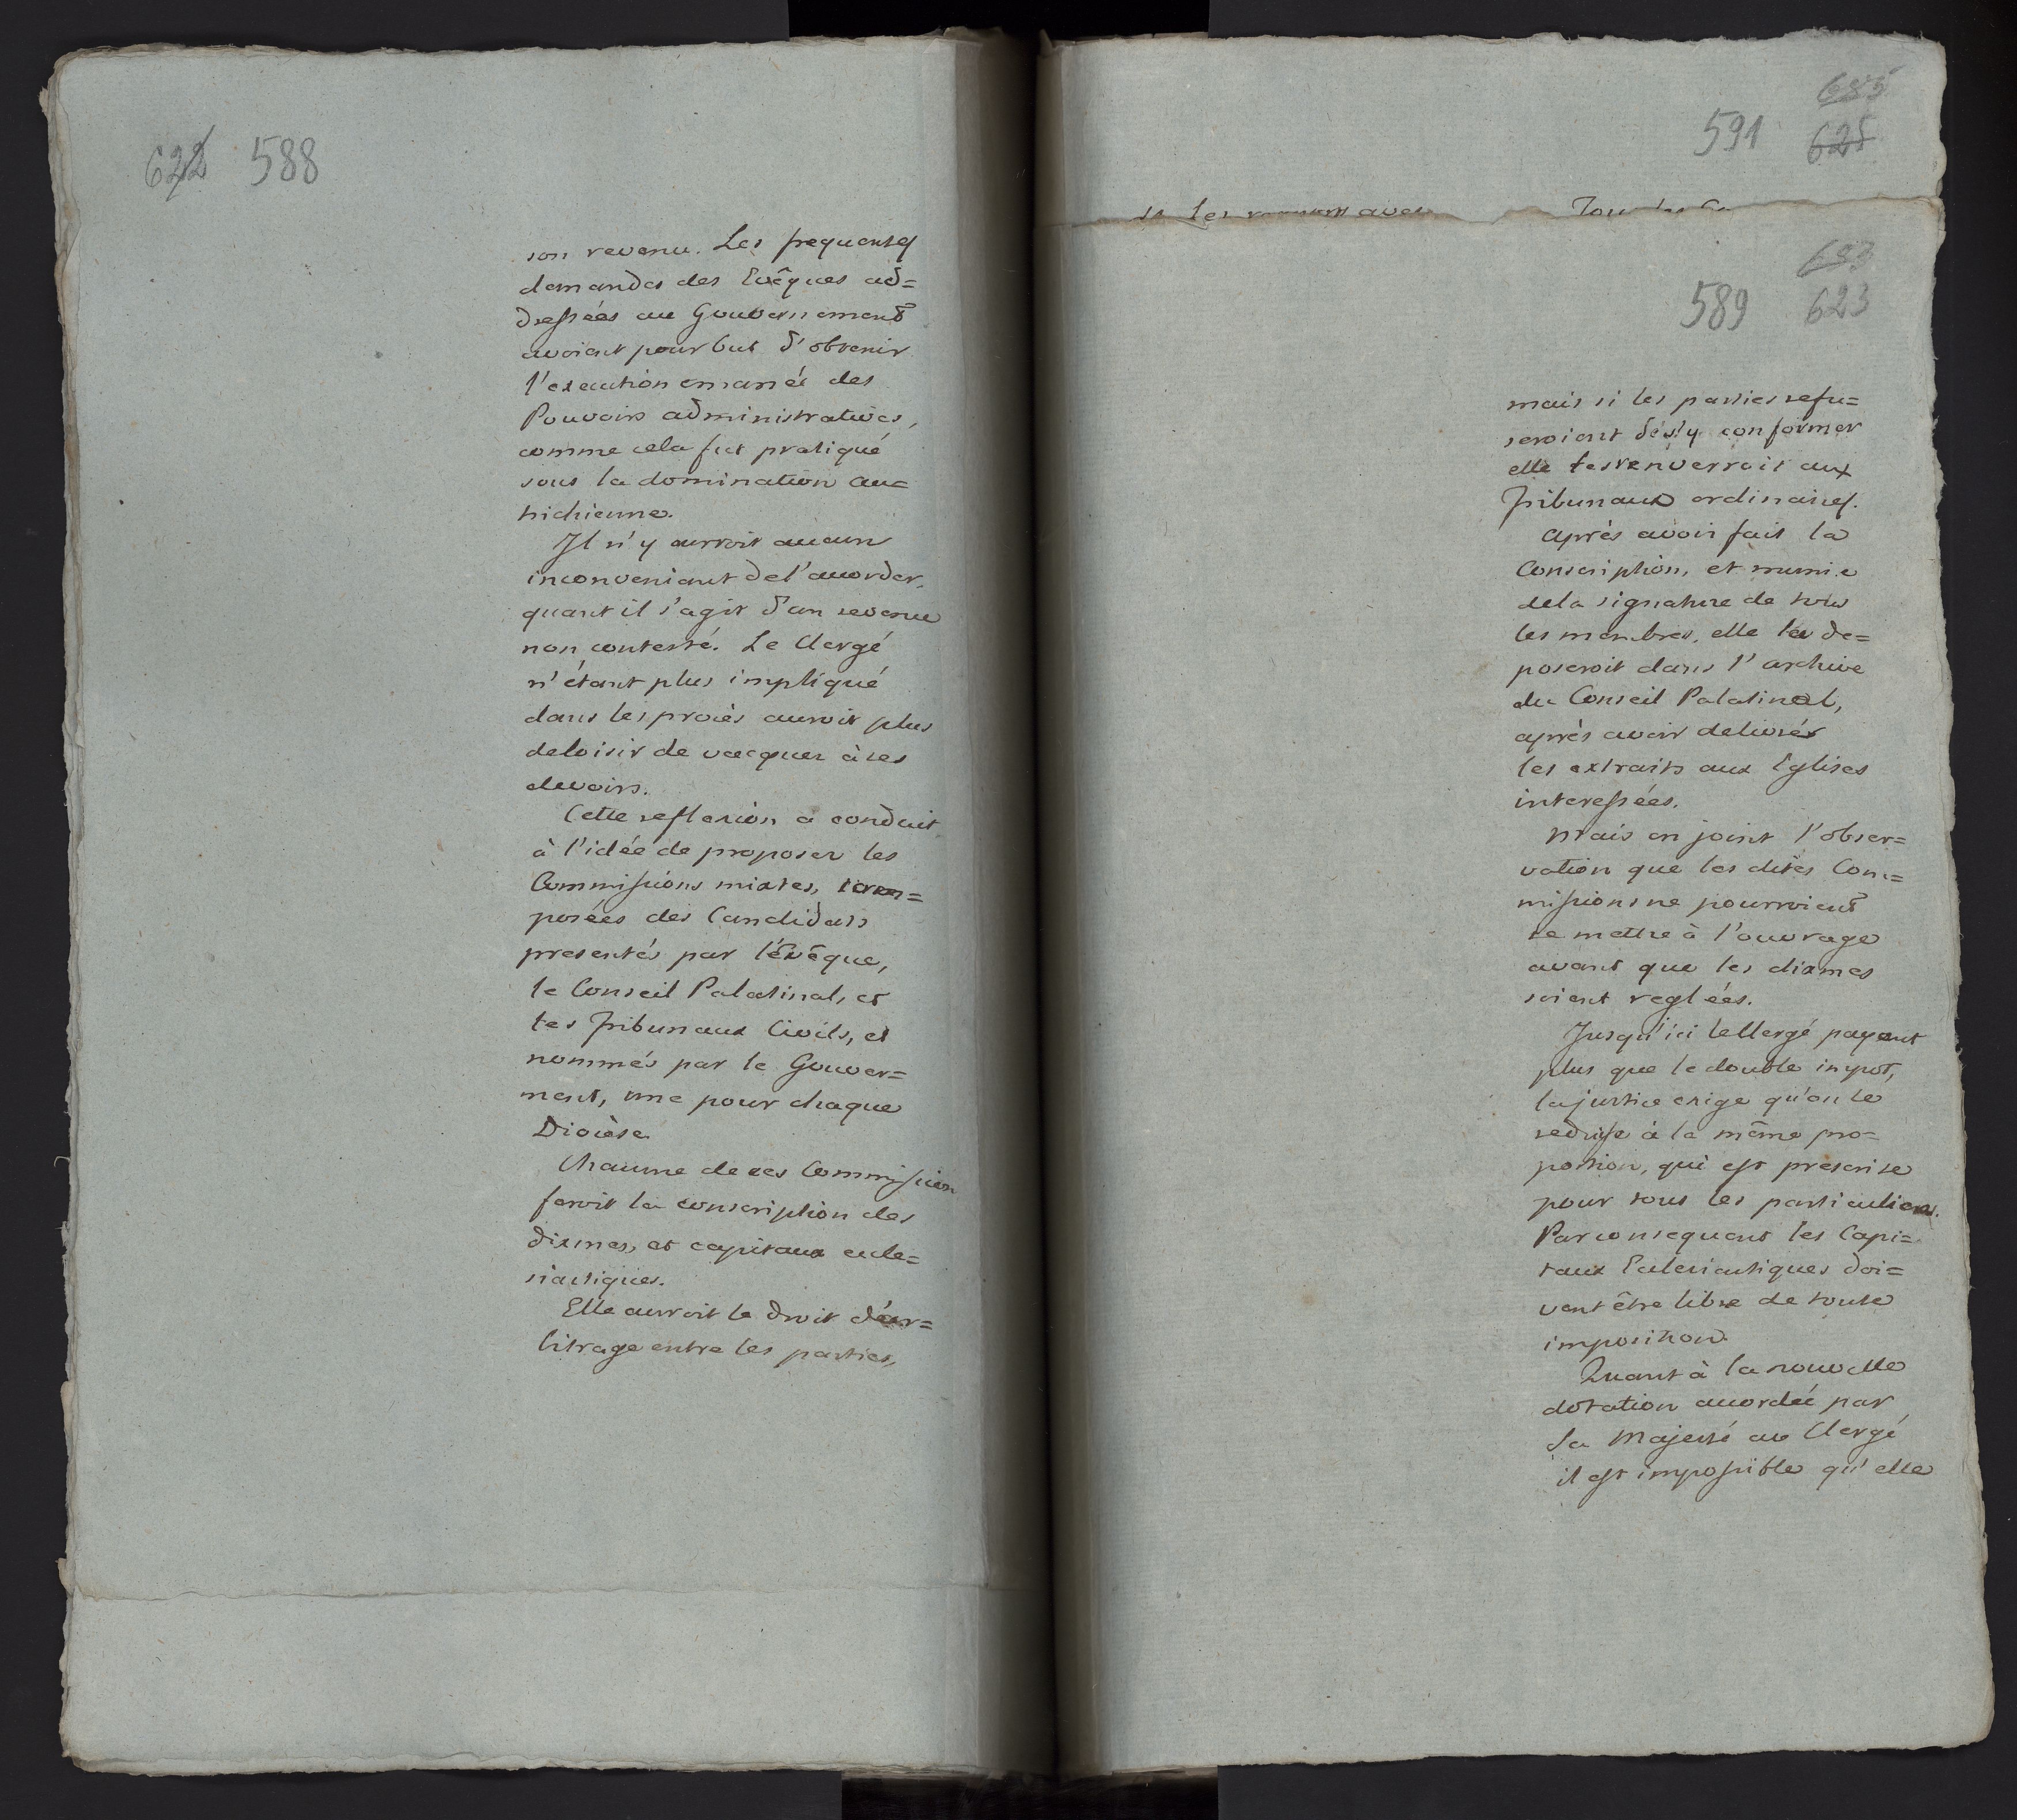 622 588
son revenu. Les frequentes
demandes des Evêques ad=
dressées au Gouvernement
avoient pour but d'obtenir
l'execution emanée des
Pouvoirs administratives,
comme cela fut pratiqué
sous la domination au=
trichienne.
Il n'y auroit aucun
inconvenient de l'accorder,
quant il s'agit d'un revenue
non contesté. Le Clergé
n'étant plus impliqué
dans les procès auroit plus
de loisir de vacquer à ses
devoirs.
Cette reflexion a conduit
à l'idée de proposer les
Commissions mixtes, com=
posées des Candidats
presentés par l'évêque,
le Conseil Palatinal, et
les Tribunaux Civils, et
nommés par le Gouver=
ment, une pour chaque
Diocèse.
Chacune de ces Commission
feroit la conscription des
dixmes, et capitaux eccle=
siastiques.
Elle auroit le droit d'ar=
bitrage entre les parties,
685
591 625
et les avec Tous les
683
589 623
mais si les parties refu=
seroient de s'y conformer
elle les renverroit aux
Tribunaux ordinaires.
Après avoir fait la
Conscription, et munie
de la signature de tous
les membres, elle la de=
poseroit dans l'archive
du Conseil Palatinal,
après avoir delivrés
les extraits aux Eglises
interessées.
Mais on joint l'obser=
vation que les dites Com=
missions ne pourroient
se mettre à l'ouvrage
avant que les dixmes
soient reglées.
Jusqu'ici le Clergé payant
plus que le double impot,
la justice exige qu'on le
reduise à la même pro=
portion, qui est prescrite
pour tous les particuliers.
Par consequent les Capi=
taux Eclesiastiques doi=
vent être libre de toute
imposition.
Quant à la nouvelle
dotation accordée par
Sa Majesté au Clergé
il est impossible qu'elle